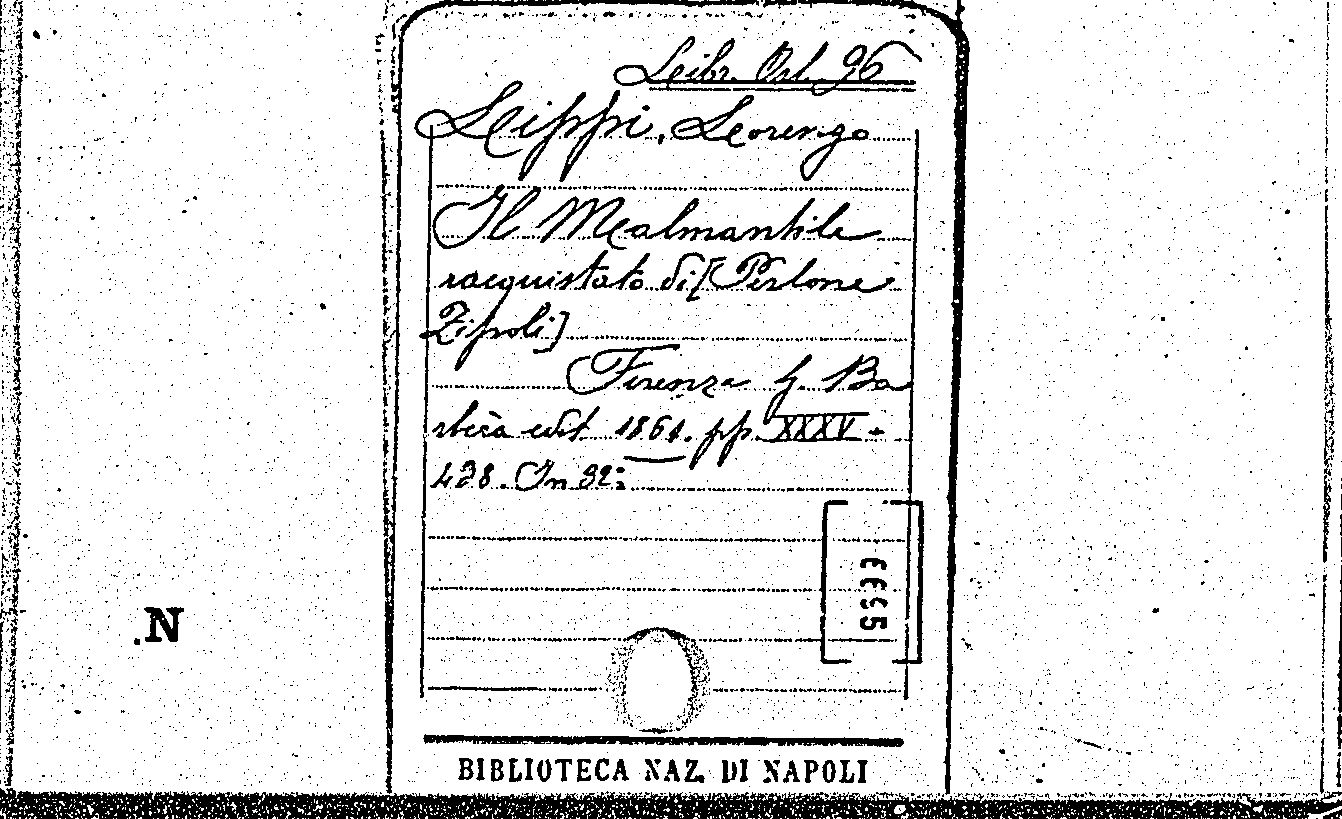 Leibr. Orl. 96
Lippi, Lorenzo
Il Malmantile
racquistato di [Perlone
Zipoli]
Firenze G. Ba
rbèra edit. 1861. pp. XXXV-
438. In 32:
N
BIBLIOTECA NAZ. DI NAPOLI